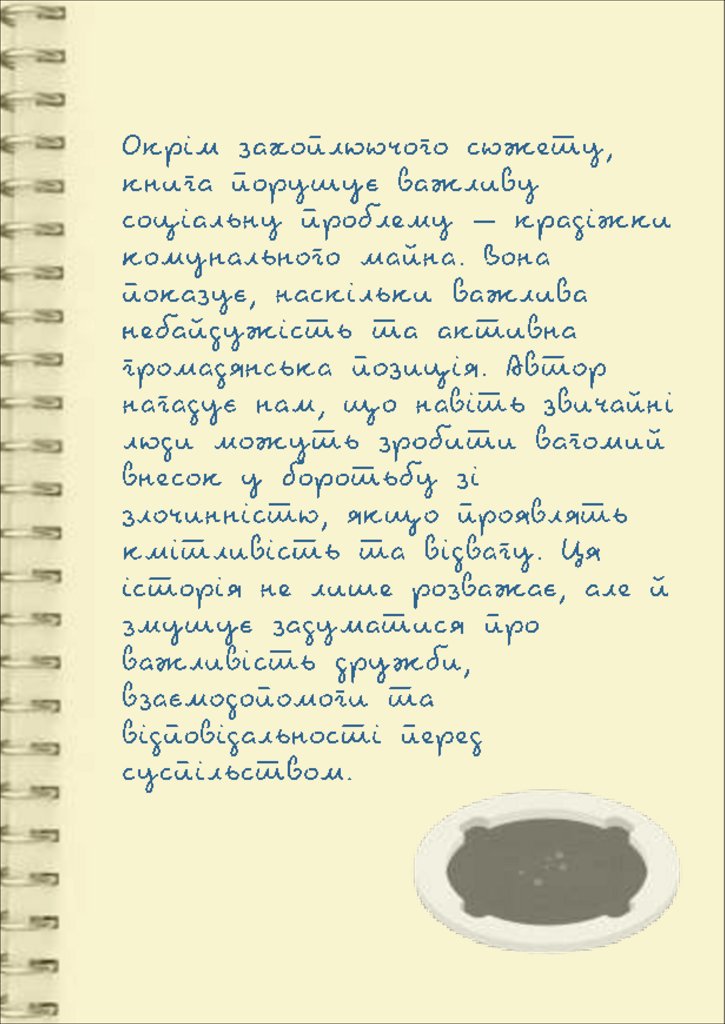 Окрім захоплюючого сюжету,
книга порушує важливу
соціальну проблему — крадіжки
комунального майна. Вона
показує, наскільки важлива
небайдужість та активна
громадянська позиція. Автор
нагадує нам, що навіть звичайні
люди можуть зробити вагомий
внесок у боротьбу зі
злочинністю, якщо проявлять
кмітливість та відвагу. Ця
історія не лише розважає, але й
змушує задуматися про
важливість дружби,
взаємодопомоги та
відповідальності перед
суспільством.